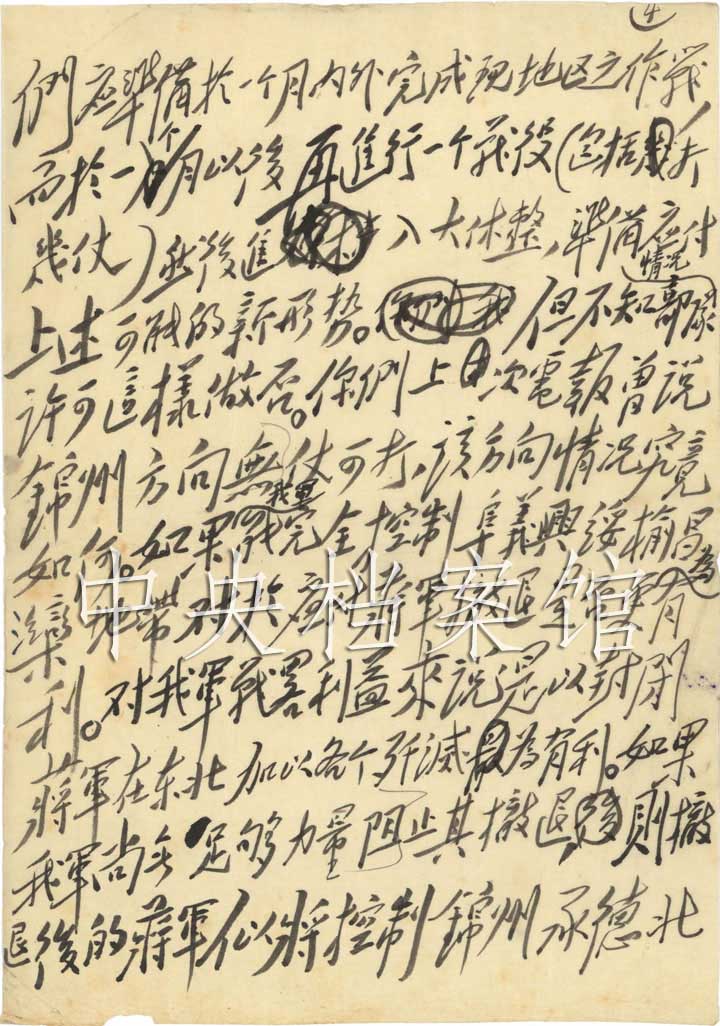 4
們应準備於一个月内外完成现地区之作戰,
而於一个月以後再進行一个戰役(包括打
幾仗)然後進入大休整,準備应付
上述可能的新形势。但不知情况
許可這樣做否。你們上次電報曾说
錦州方向無仗可打,該方向情况究竟
如何。如果我軍能完全控制阜義興綏榆昌
灤地帶,对於应付蔣軍撤退是否更為有
利。对我軍戰略利益來说,是以封閉
蔣軍在东北加以各个歼滅為有利。如果
我軍尚無足够力量阻止其撤退,則撤
退後的蔣軍似將控制錦州承德北
中央档案馆